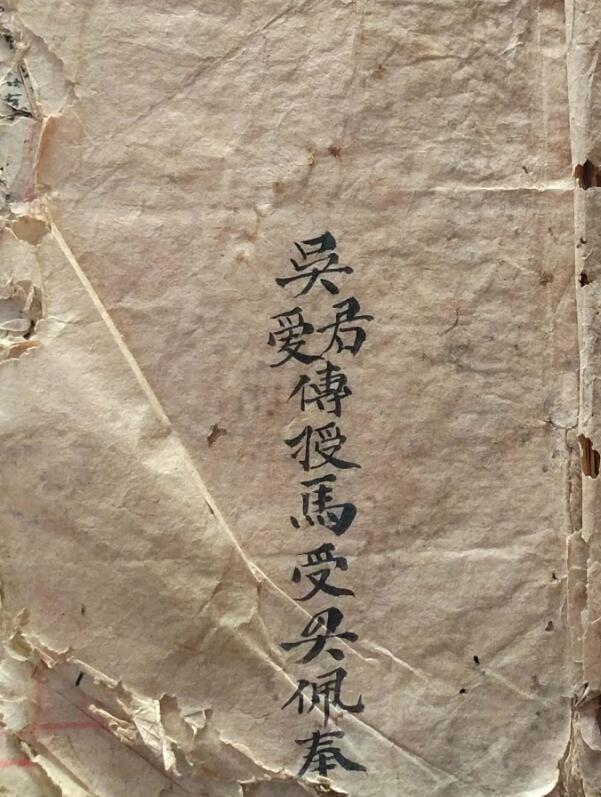 吳君爱傳授馬受吳佩奉